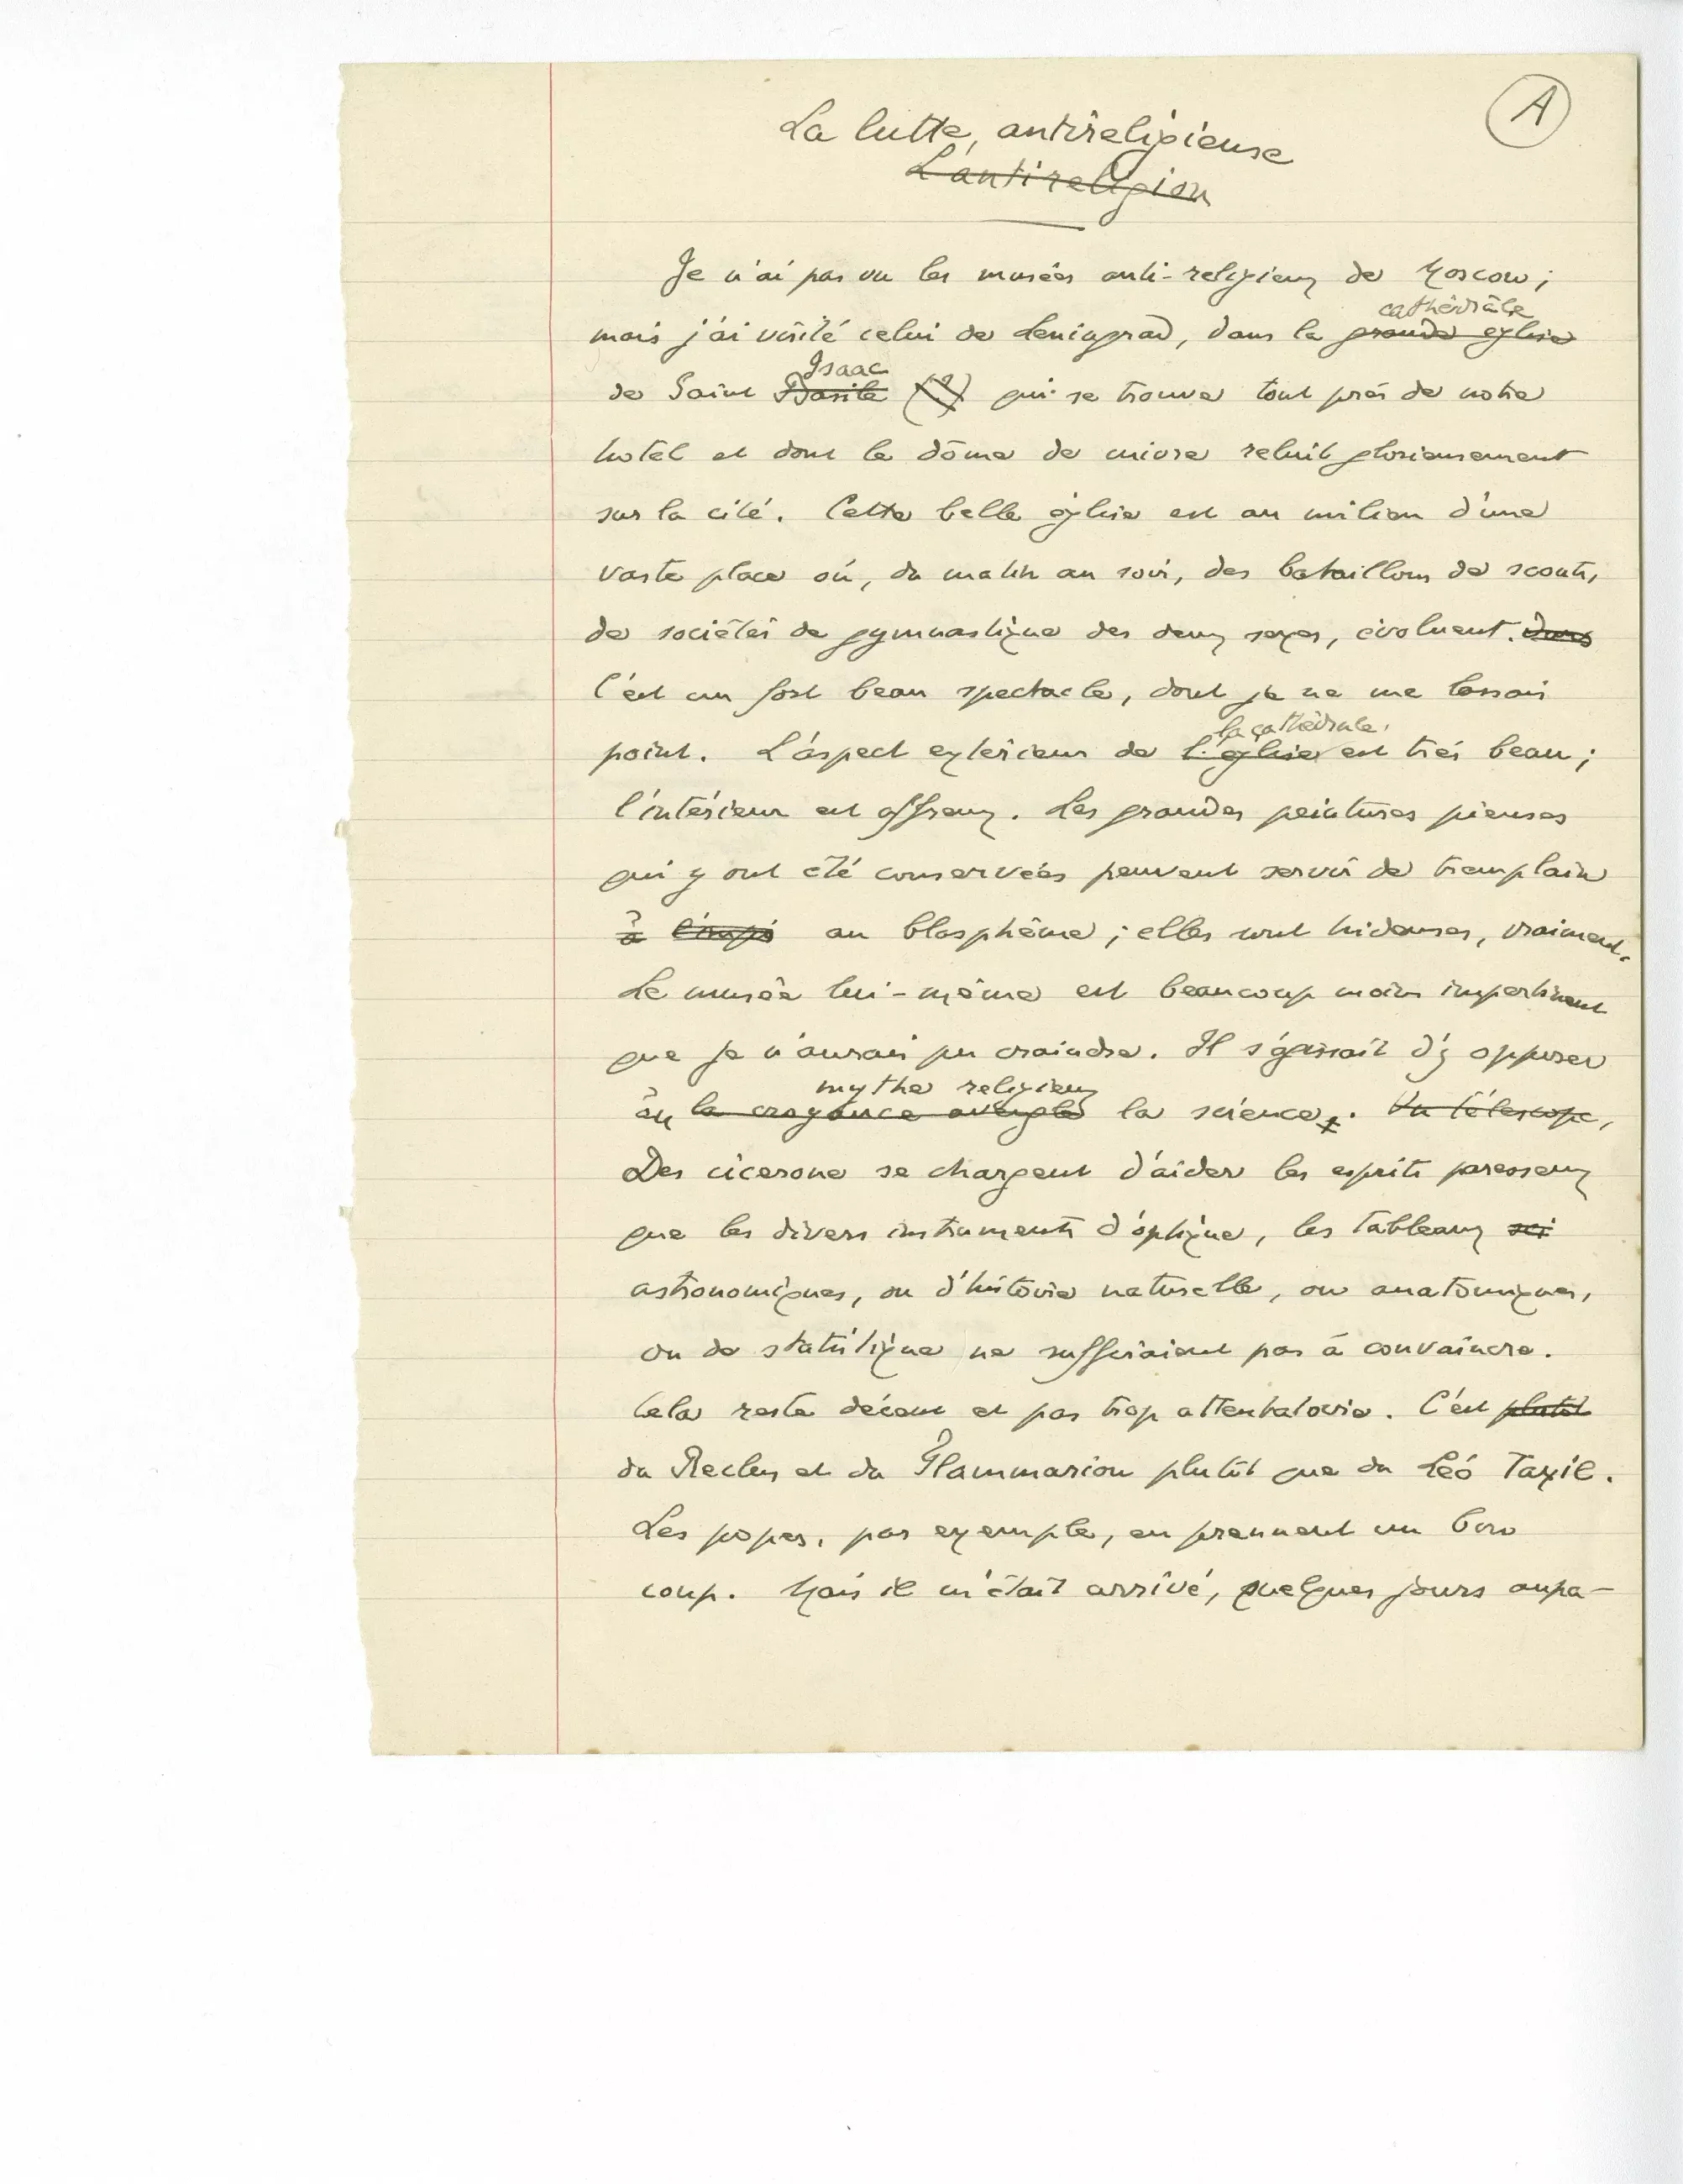 A
La lutte antireligieuse
L'antireligion
Je n'ai pas vu les musées anti-religieux de Moscow;
cathédrale
mais j'ai visité celui de Leningrad, dans la grande église
Isaac
de Saint Basile (?) qui se trouve tout près de notre
hotel et dont le dôme de cuivre reluit glorieusement
sur la cité. Cette belle église est au milieu d'une
vaste place où, du matin au soir, des bataillons de scouts,
de sociétés de gymnastique des deux sexes, évoluent. Dans
C'est un fort beau spectacle, dont je ne me lassais
la cathédrale
point. L'aspect extérieur de l'église est très beau;
l'intérieur est affreux. Les grandes peintures pieuses
qui y ont été conservées peuvent servir de tremplain
à l'impi au blasphème; elles sont hideuses, vraiment.
Le musée lui-même est beaucoup moins impertinent
que je n'aurais pu craindre. Il s'agissait d'y opposer
mythe religieux
au la croyance aveugle la science. Un télescope,
Des cicerone se chargent d'aider les esprits paresseux
que les divers instruments d'optique, les tableaux sci
astronomiques, ou d'histoire naturelle, ou anatomiques,
ou de statistique ne suffiraient pas à convaincre.
Cela reste décent et pas trop attentatoire. C'est plutôt
du Reclus et du Flammarion plutôt que du Léo Taxil.
Les popes, par exemple, en prennent un bon
coup. Mais il m'était arrivé, quelques jours aupa-